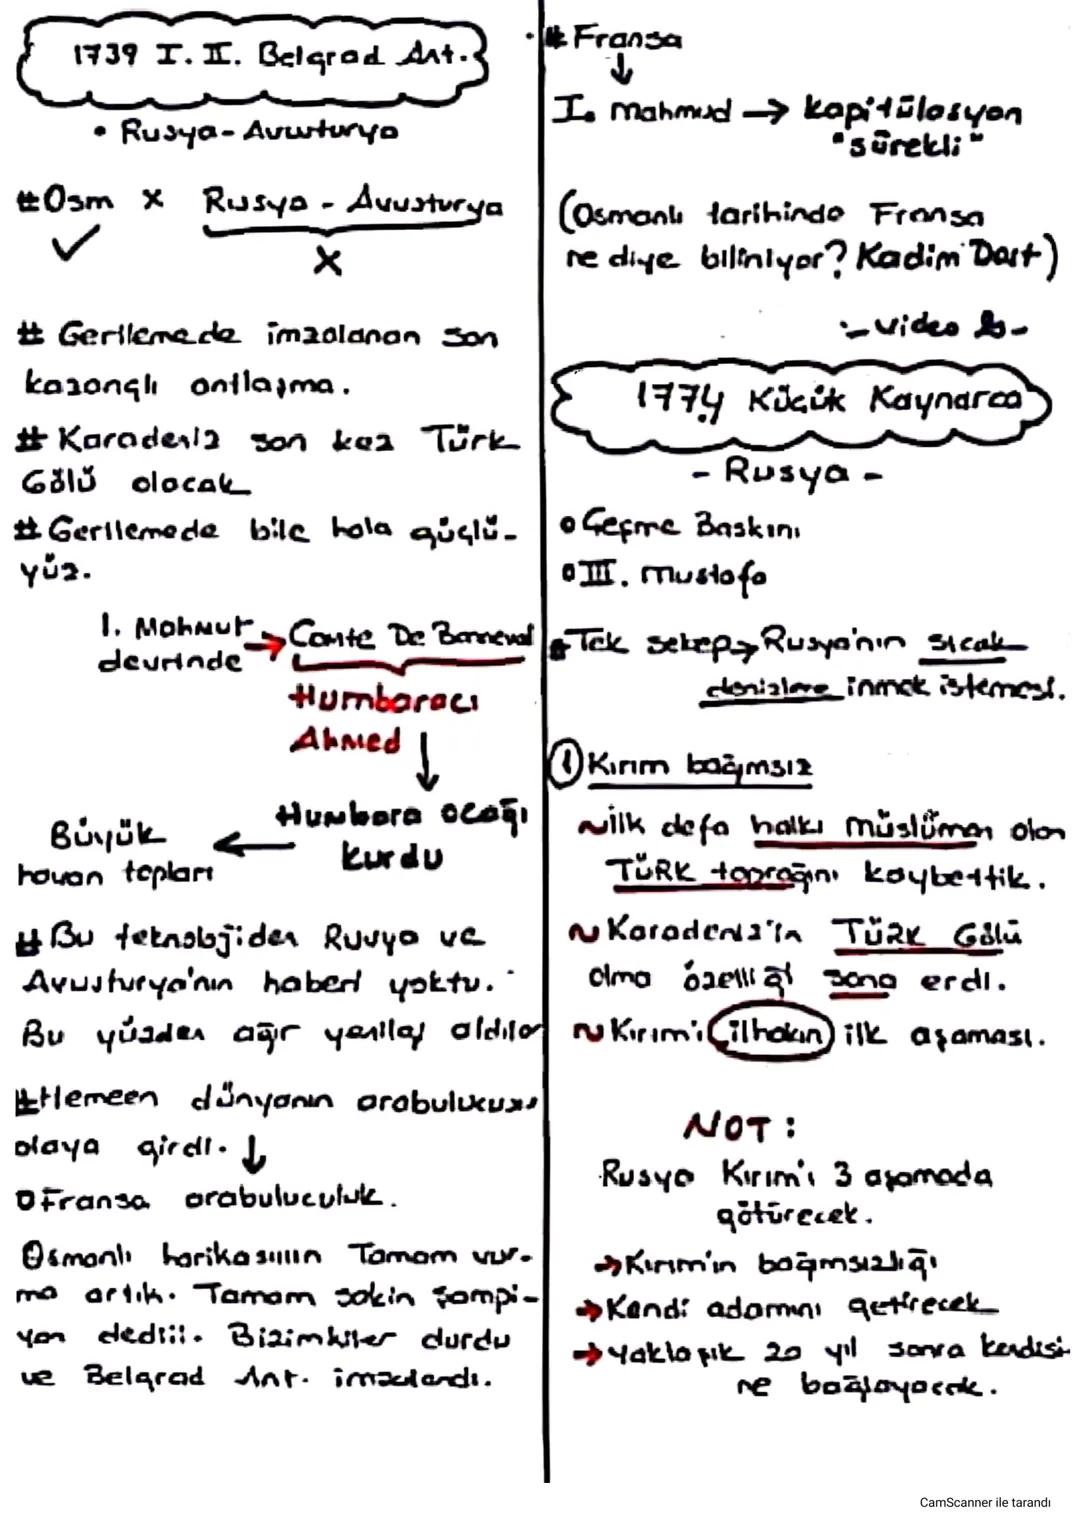 1739 I. II. Belgrad Ant.
• Rusya-Avusturya
#Osm X Rusya - Avusturya
✓ X
# Gerilemede imzalanan son
kazançlı antlaşma.
# Karadeniz son kez Türk
Gölü olacak
# Gerilemede bile hala güçlü-
yüz.
1. Mahmut → Comte De Bonneval
devrinde
Humbaracı
Ahmed ↓
Humbara ocağı
kurdu
← Büyük
havan topları
# Bu teknolojiden Rusya ve
Avusturya'nın haberi yoktu.
Bu yüzden ağır yenilgi aldılar
#Hemeen dünyanın arabulucusu
olaya girdi. ↓
□ Fransa arabuluculuk.
Osmanlı harikasınn Tamam vur-
ma artık. Tamam sakin şampi-
yon dedi. Bizimkiler durdu
ve Belgrad Ant. imzalandı.
# Fransa
↓
I. Mahmud → kapitülasyon
"sürekli"
(Osmanlı tarihinde Fransa
ne diye biliniyor? Kadim Dost)
- video
1774 Küçük Kaynarca
- Rusya -
o Çeşme Baskını
o III. Mustafa
# Tek sebep → Rusya'nın sıcak
denizlere inmek istemesi.
① Kırım bağımsız
~ilk defa halkı müslüman olan
TÜRK toprağını kaybettik.
~ Karadeniz'in TÜRK Gölü
olma özelliği sona erdi.
~ Kırım'ı ilhakın ilk aşaması.
NOT:
Rusya Kırım'ı 3 aşamada
götürecek.
→ Kırım'ın bağımsızlığı
→ Kendi adamını getirecek
→ yaklaşık 20 yıl sonra kendisi-
ne bağlayacak.
CamScanner ile tarandı